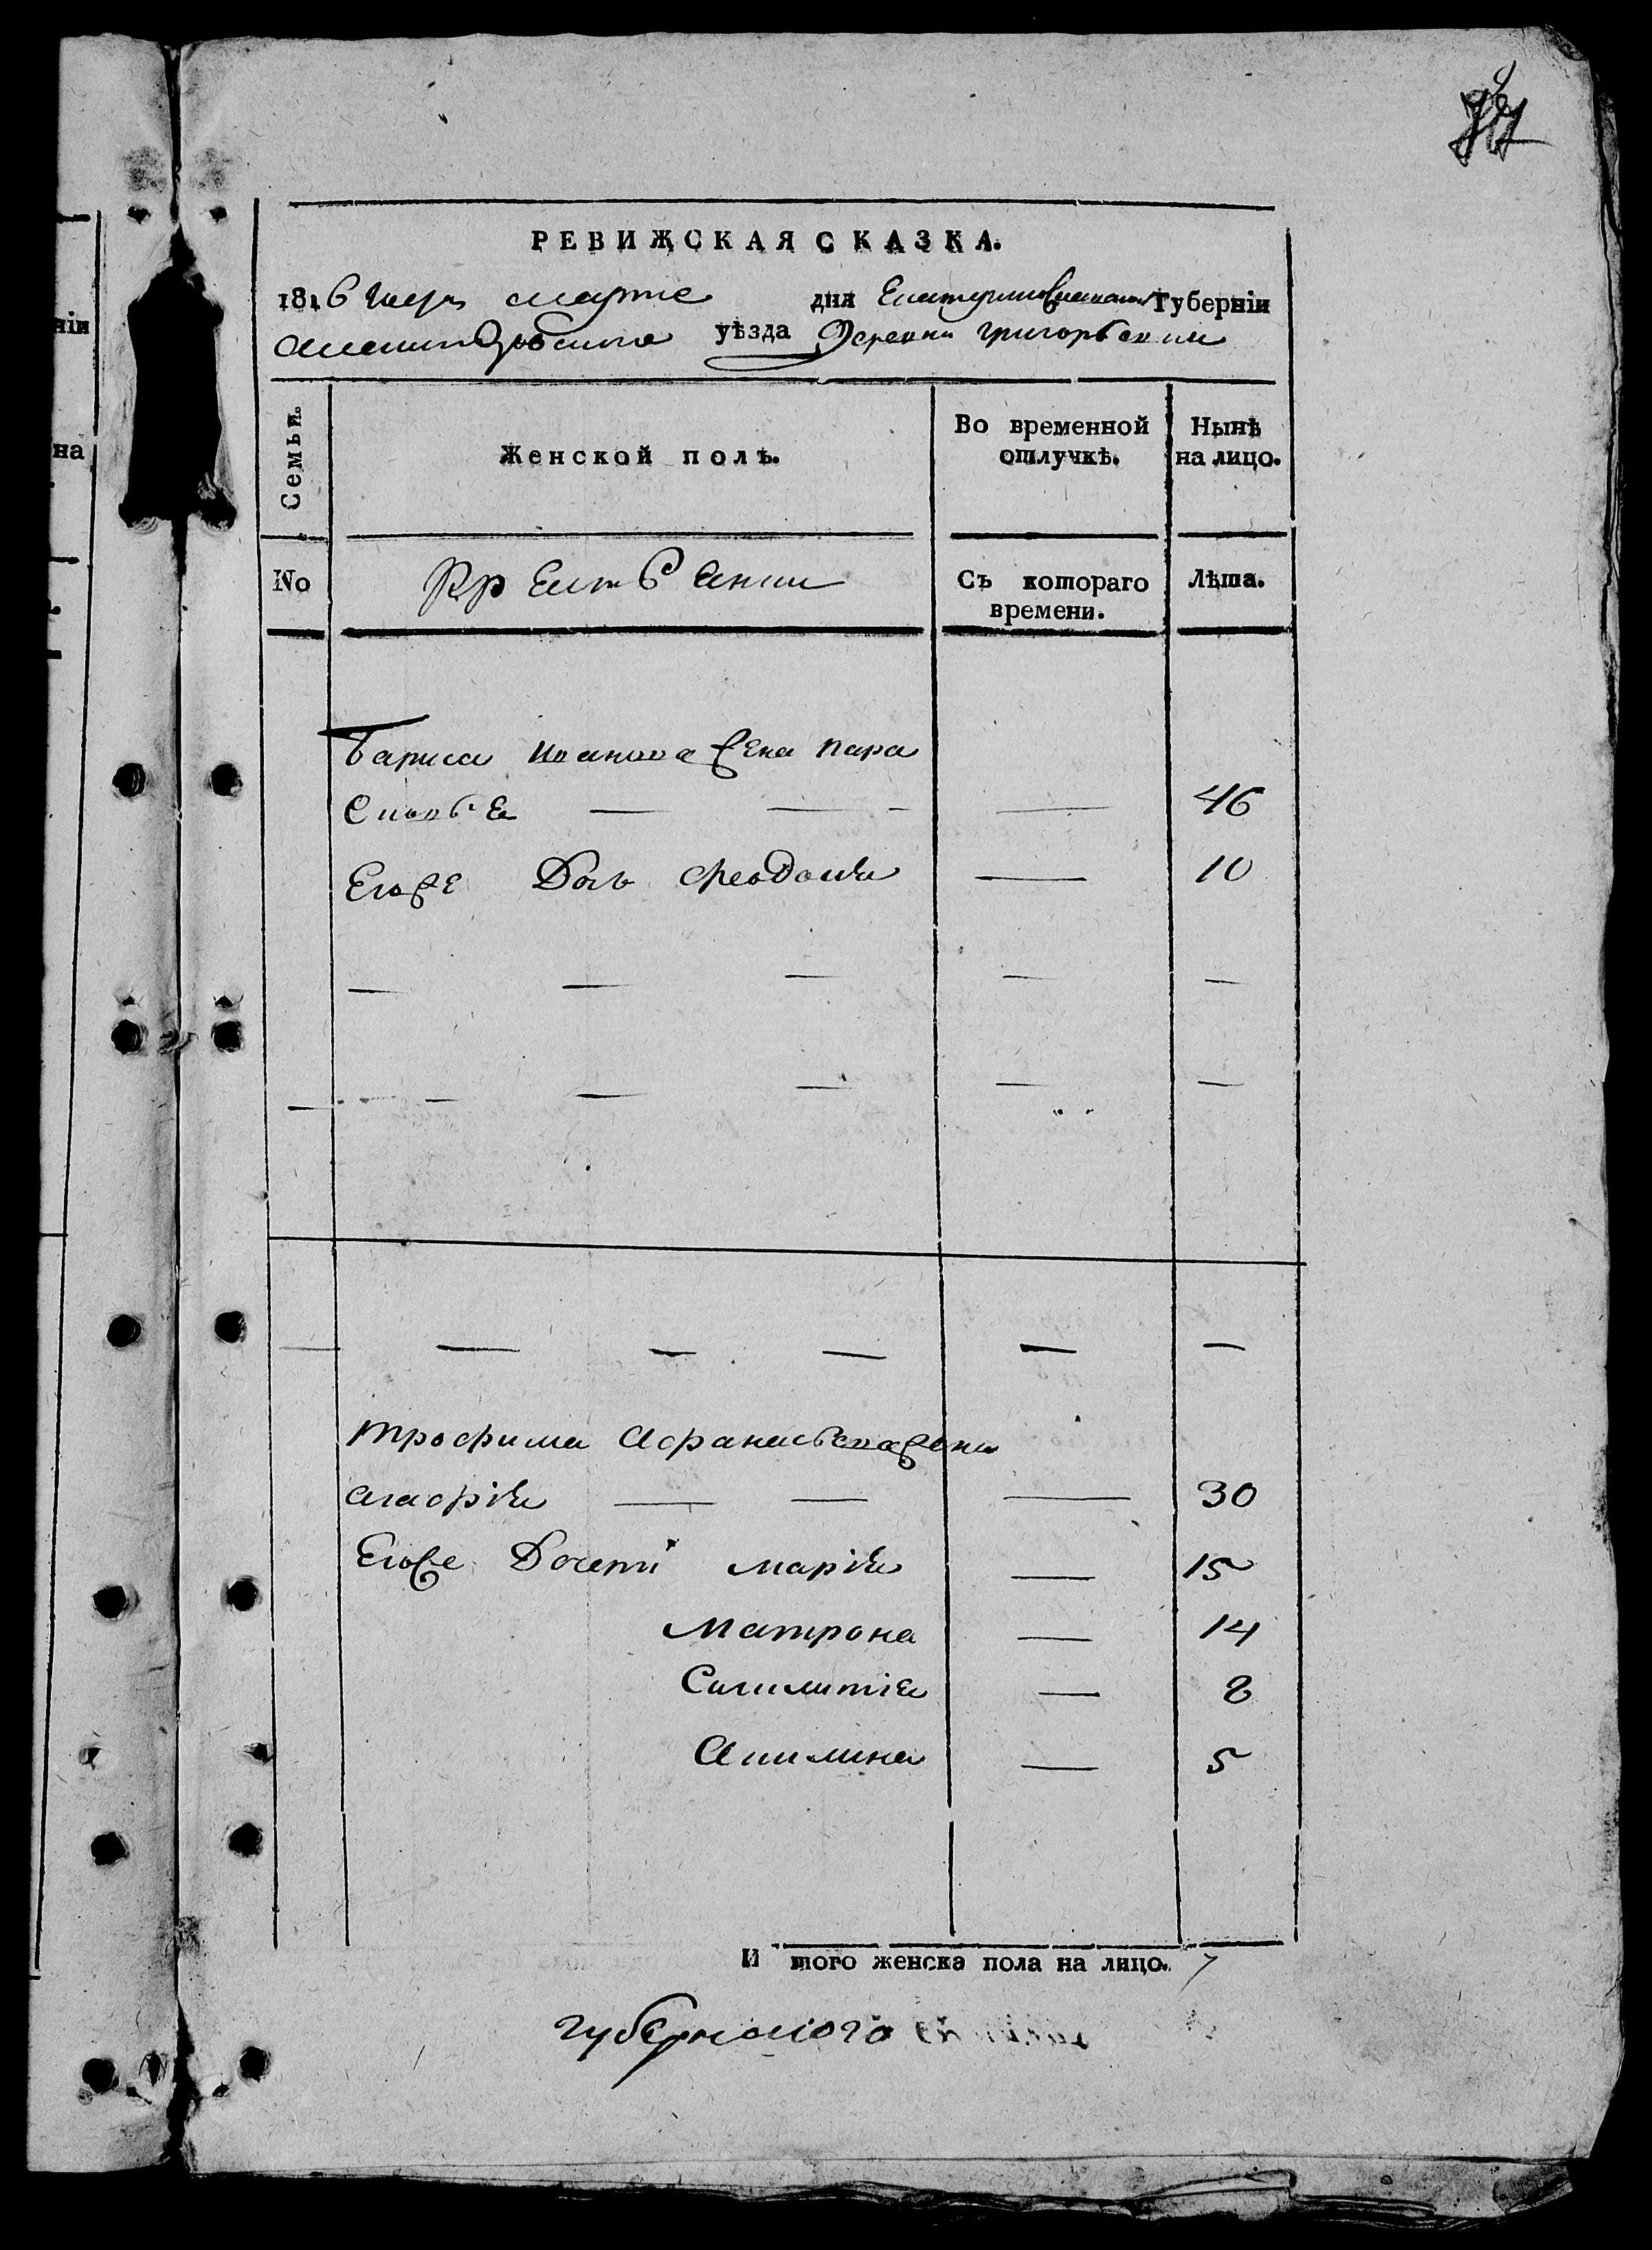 РЕВИЖСКАЯ СКАЗКА.
1816 года марта дня Екатеринославской Губерніи
Александровского уѣзда Деревни Григорьевки
Семьи.
Женской полъ.
Во временной отлучкѣ.
Нынѣ на лицо.
No
Крестьянки
Съ котораго времени.
Лѣта.
Бариса Иванова жена Пара
сковья — — — — 46
Егоже Дочь Феодосия — 10
— — — — —
— — — — — —
— — — — — —
Трофима Афанасьева жена
агафія — — — 30
Егоже Дочери марія — 15
Матрона — 14
— 8
Акилина — 5
И того женска пола на лицо. 7